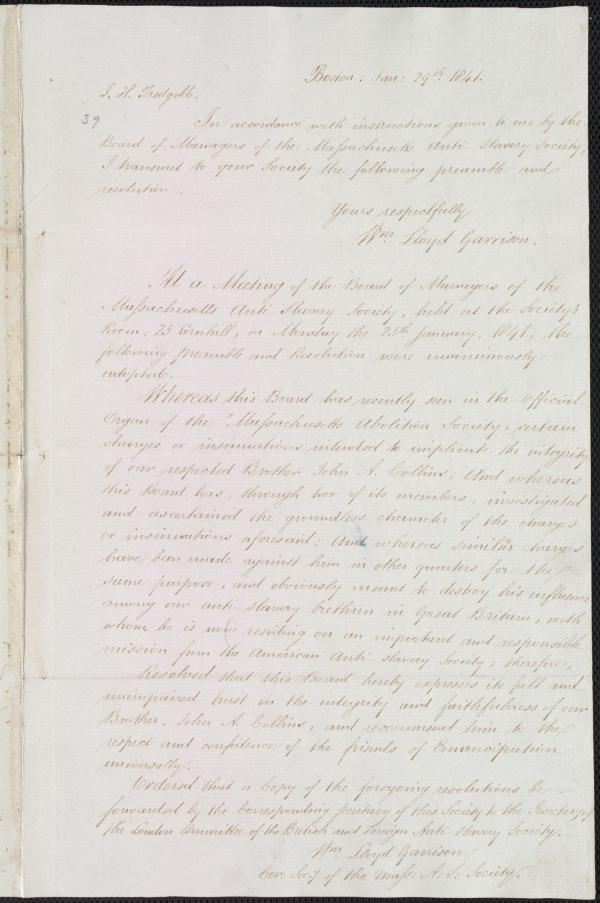 Boston. Jan: 29th 1841.
J. H. Tredgold,
39
In accordance with instructions given to me by the
Board of Managers of the Massachusetts Anti Slavery Society,
I transmit to your Society the following preamble and
resolution.
Yours respectfully
Wm Lloyd Garrison.
At a Meeting of the Board of Managers of the
Massachusetts Anti Slavery Society, held at the Society's
Room, 25 Cornhill, on Monday the 25th January, 1841, the
following Preamble and Resolution were unanimously
adopted.
Whereas this Board has recently seen in the Official
Organ of the "Massachusetts Abolition Society, certain
charges or insinuations intended to implicate the integrity
of our respected Brother John A. Collins; And whereas
this Board has, through two of its members, investigated
and ascertained the groundless character of the charges
or insinuations aforesaid; And whereas similar charges
have been made against him in other quarters for the
same purpose, and obviously meant to destroy his influence
among our anti slavery brethren in Great Britain, with
whom he is now residing on an important and responsible
mission from the American Anti slavery Society; therefore,
Resolved that this Board hereby expresses its full and
unimpaired trust in the integrity and faithfulness of our
Brother, John A. Collins, and recommend him to the
respect and confidence of the friends of Emancipation
universally.
Ordered that a Copy of the foregoing resolutions be
forwarded by the Corresponding Secretary of this Society to the Secretary of
the London Committee of the British and Foreign Anti slavery Society.
Wm Lloyd Garrison
Cor: Soc'y of the Mass: A: S: Society.